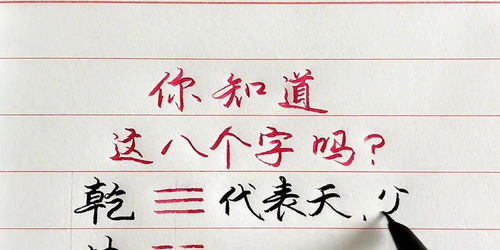 你知道
这八个字吗?
乾☰代表天,